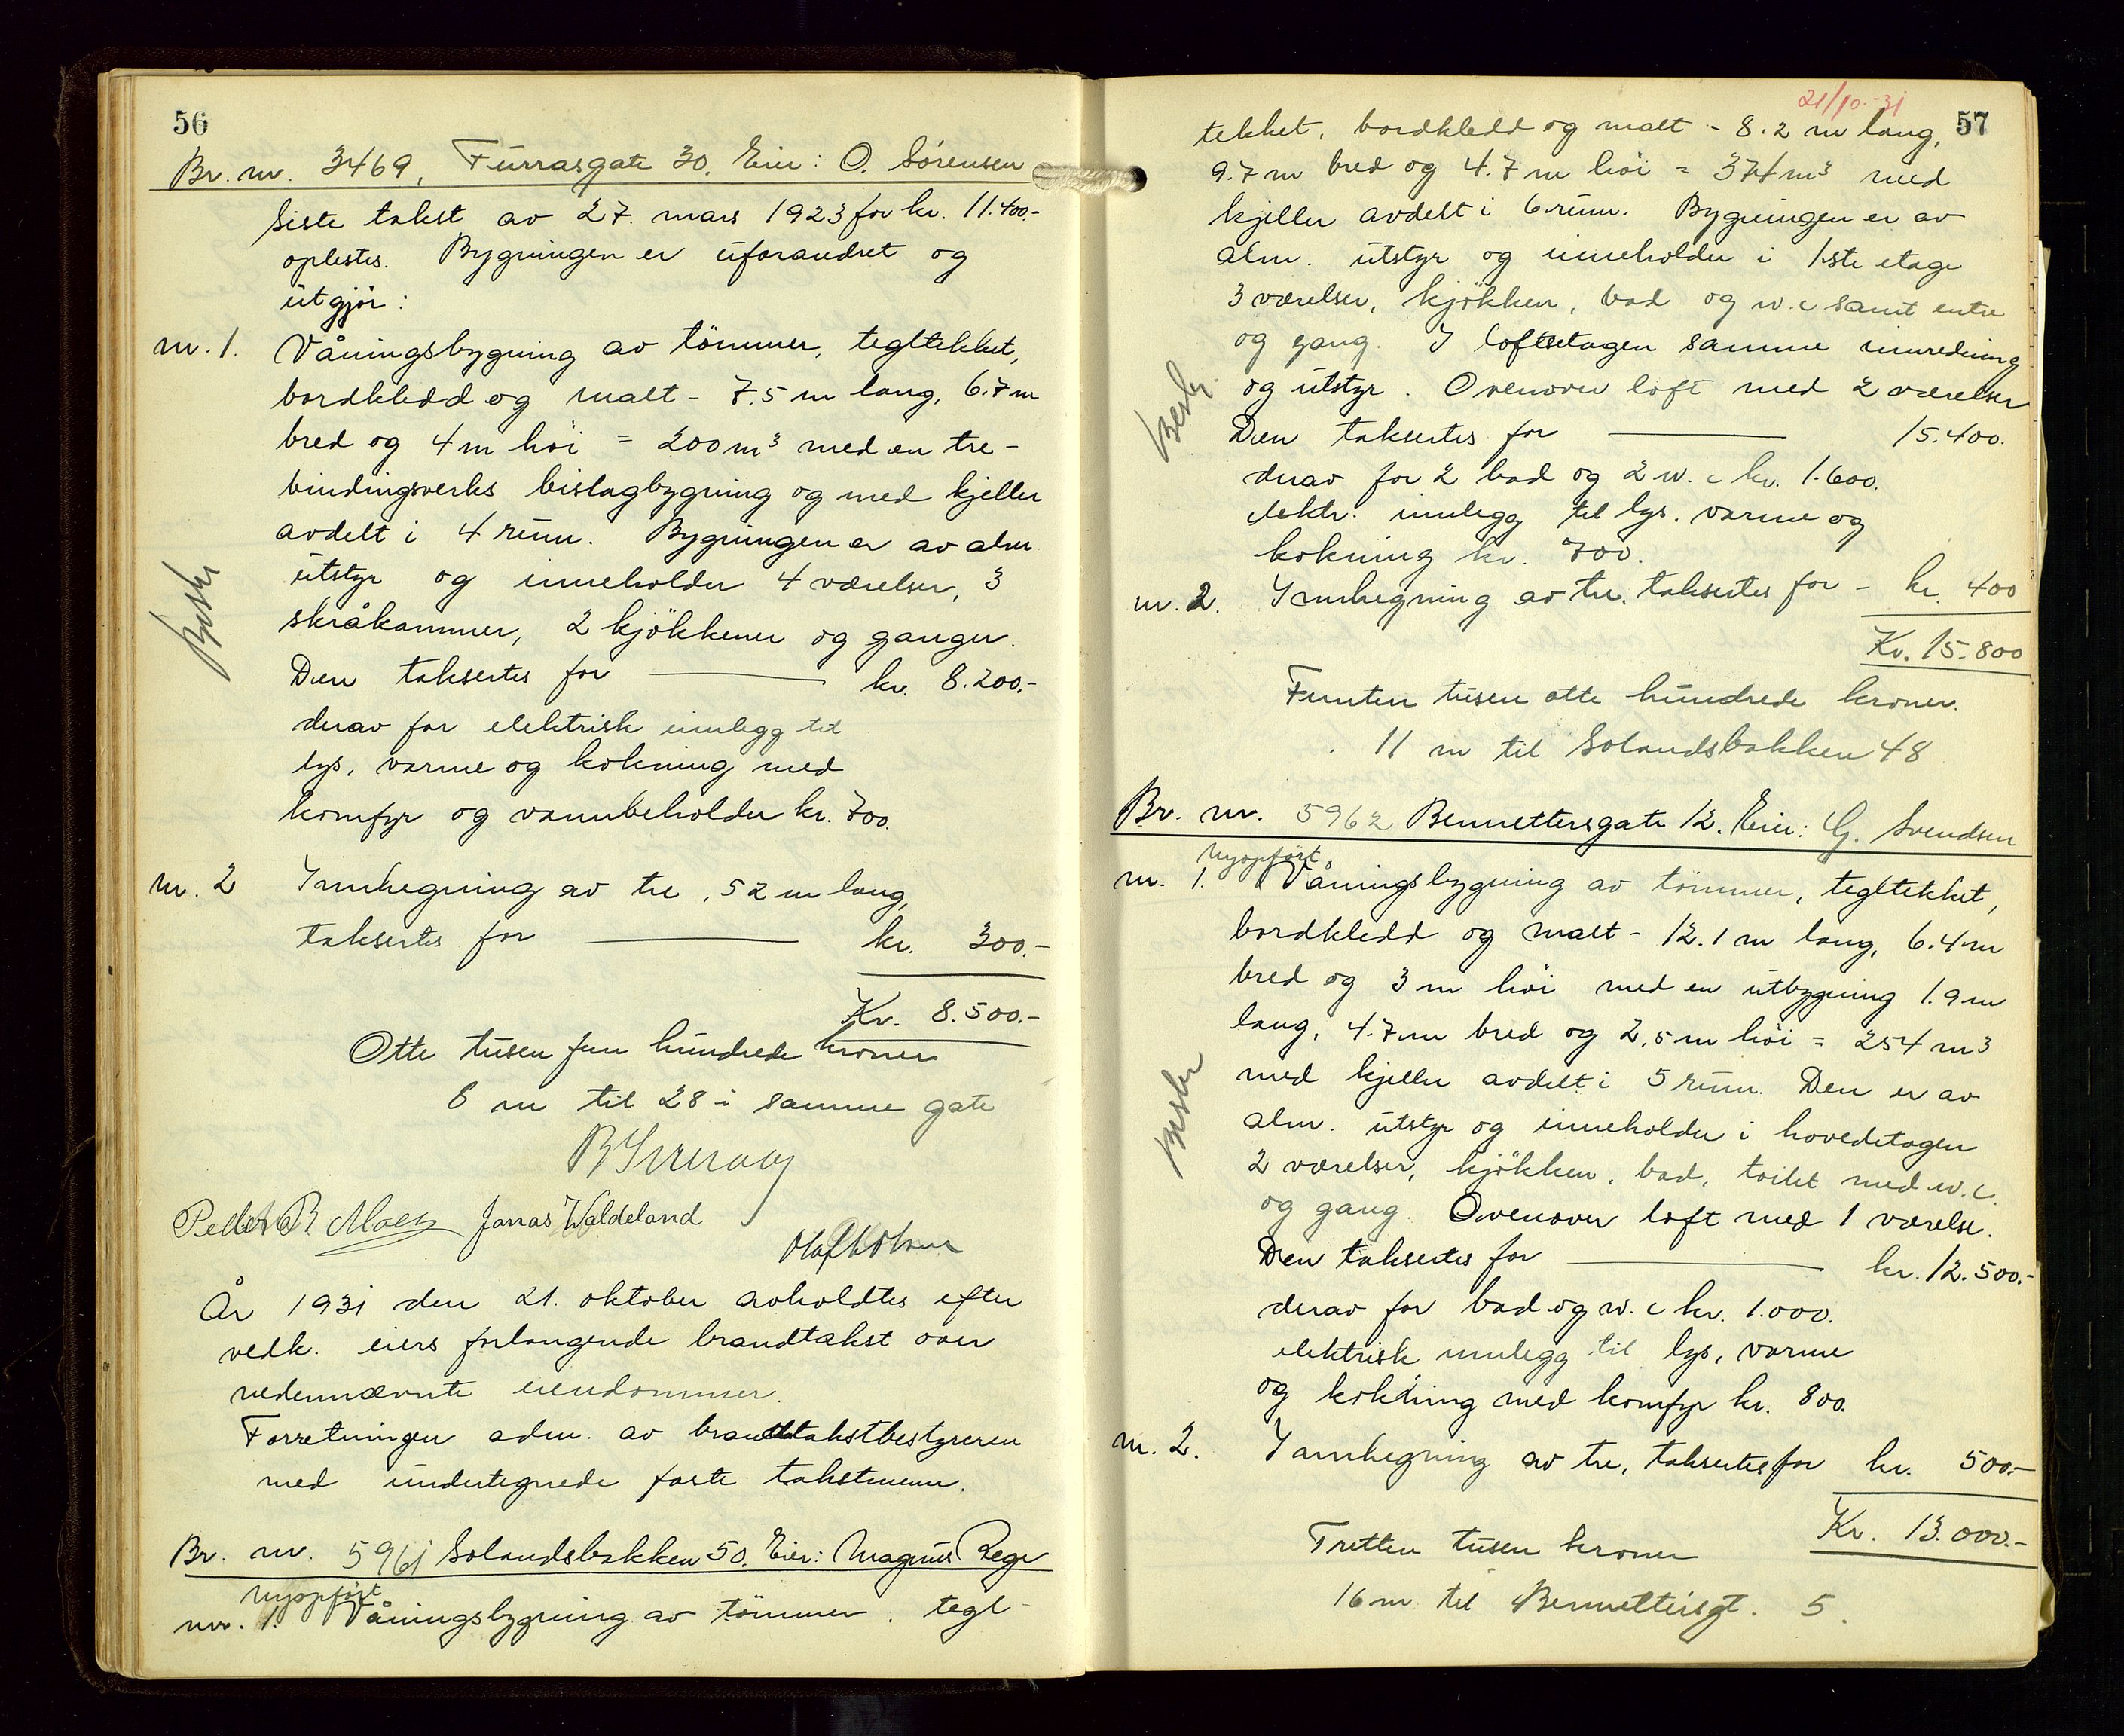 56
Br. nr. 3469, Furrasgate 30. Eier: O. Sørensen
Siste takst av 27. mars 1923 for kr. 11.400.-
oplestes. Bygningen er uforandret og
utgjør:
nr. 1. Våningsbygning av tömmer, tegltekket,
bordkledd og malt - 7.5 m lang, 6.7 m
bred og 4 m höi = 200 m³ med en tre-
bindingsverks bislagbygning og med kjeller
avdelt i 4 rum. Bygningen er av alm
utstyr og inneholder 4 værelser, 3
skråkammer, 2 kjökkener og ganger.
Beskr
Den taksertes for kr. 8.200.-
derav for elektrisk innlegg til
lys, varme og kokning med
komfyr og vannbeholder kr. 700.
nr. 2 Innhegning av tre, 52 m lang,
taksertes for kr. 300.-
Kr. 8.500.-
Otte tusen fem hundrede kroner
6 m til 28 i samme gate
Jonas Waldeland
År 1931 den 21. oktober avholdtes efter
vedk. eiers forlangende brandtakst over
nedennævnte eiendommer.
Forretningen adm. av brandtakstbestyreren
med undertegnede faste takstmenn.
Br. nr. 5961 Solandsbakken 50. Eier: Magnus Rege
nyopført
nr. 1. Våningsbygning av tömmer, tegl-
21/10.-31
57
tekket, bordkledd og malt - 8.2 m lang,
9.7 m bred og 4.7 m höi = 374 m³ med
kjeller avdelt i 6 rum. Bygningen er av
alm. utstyr og inneholder i 1ste etage
3 værelser, kjökken, bad og w.c samt entre
og gang. I loftsetagen samme innredning
og utstyr. Ovenover loft med 2 værelser
Beskr.
Den taksertes for 15.400.
derav for 2 bad og 2 w.c kr. 1.600.
elektr. innlegg til lys, varme og
kokning kr. 700.
nr. 2. Innhegning av tre, taksertes for - kr. 400
Kr. 15.800
Femten tusen otte hundrede kroner.
11 m til Solandsbakken 48
Br. nr. 5962 Bennettersgate 12. Eier: G. Svendsen
nyopført
nr. 1. Våningsbygning av tömmer, tegltekket,
bordkledd og malt - 12.1 m lang, 6.4 m
bred og 3 m höi med en utbygning 1.9 m
lang, 4.7 m bred og 2,5 m höi = 254 m³
med kjeller avdelt i 5 rum. Den er av
alm. utstyr og inneholder i hovedetagen
Beskr
2 værelser, kjökken, bad, toilet med w.c.
og gang. Ovenover loft med 1 værelse.
Den taksertes for kr. 12.500.-
derav for bad og w.c kr. 1.000.
elektrisk innlegg til lys, varme
og kokning med komfyr kr. 800.
nr. 2. Innhegning av tre, taksertes for kr. 500.-
Kr. 13.000.-
Tretten tusen kroner
16 m til Bennettersgt. 5.